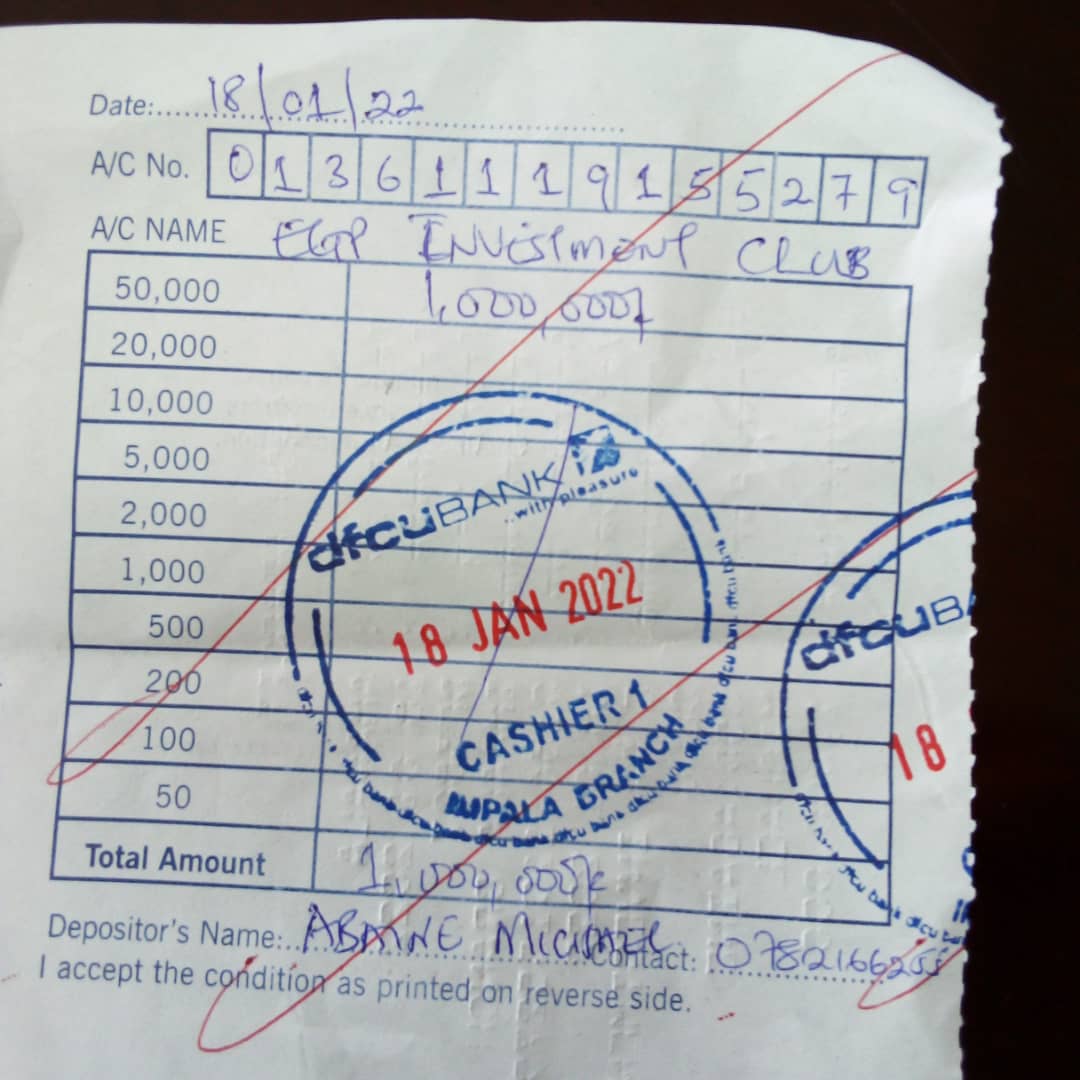 Date:.....18/01/22
A/C No. 01361119155279
A/C NAME EGP INVESTMENT CLUB
50,000 1,000,000/=
20,000
10,000
5,000
2,000
1,000
500
200
100
50
Total Amount 1,000,000/=
dfcu BANK
..with pleasure
18 JAN 2022
CASHIER 1
IMPALA BRANCH
dfcu BA
18
Depositor's Name:..ABAINE MICHAEL Contact: 0782166255
I accept the condition as printed on reverse side.